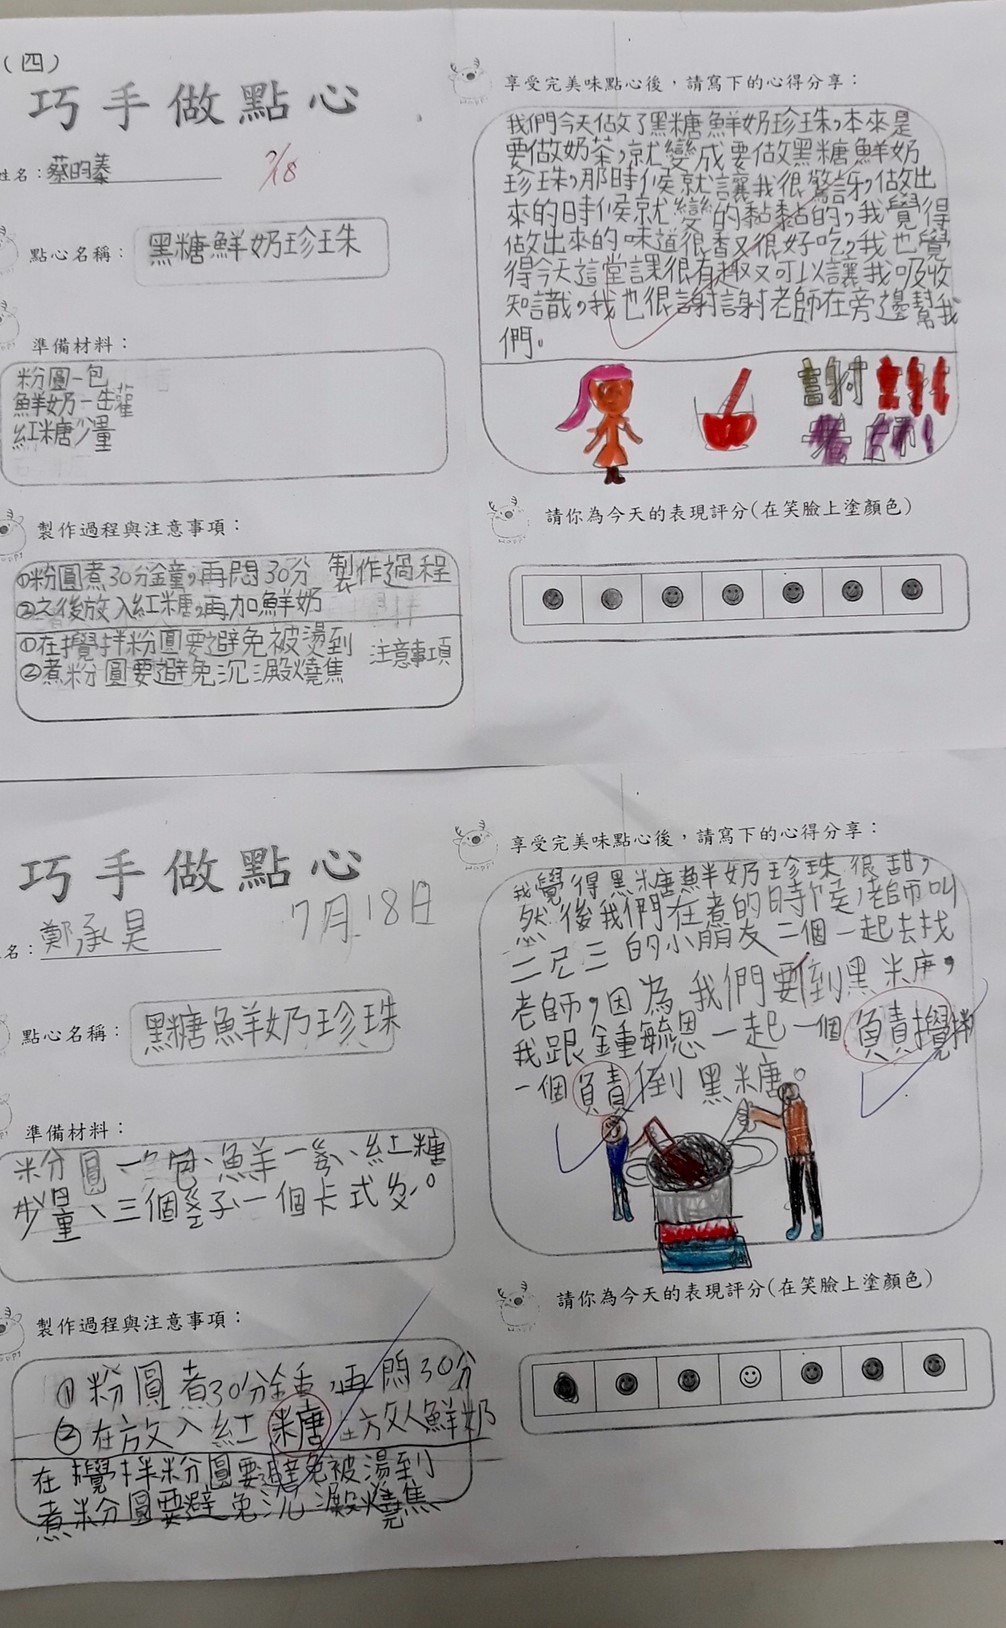 (四)
巧手做點心
姓名：蔡昀蓁
7/18
點心名稱：黑糖鮮奶珍珠
準備材料：
粉圓一包
鮮奶一罐
紅糖少量
製作過程與注意事項：
①粉圓煮30分鐘，再悶30分 製作過程
②之後放入紅糖，再加鮮奶
①在攪拌粉圓要避免被燙到 注意事項
②煮粉圓要避免沉澱燒焦
享受完美味點心後，請寫下的心得分享：
我們今天做了黑糖鮮奶珍珠，本來是
要做奶茶，就變成要做黑糖鮮奶
珍珠，那時候就讓我很驚訝，做出
來的時候就變的黏黏的，我覺得
做出來的味道很香又很好吃，我也覺
得今天這堂課很有趣又可以讓我吸收
知識，我也很謝謝老師在旁邊幫我
們。
謝謝
老師！
請你為今天的表現評分(在笑臉上塗顏色)
巧手做點心
名：鄭承昊
7月18日
點心名稱：黑糖鮮奶珍珠
準備材料：
粉圓一包、鮮
紅糖
少量、三個
子一個卡式
製作過程與注意事項：
①粉圓煮30分鐘，再悶30分
②在放入紅糖在放入鮮奶
在攪拌粉圓要避免被湯到
煮粉圓要避免沉澱燒焦
享受完美味點心後，請寫下的心得分享：
我覺得黑糖鮮奶珍珠很甜，
然後我們在煮的時候，老師叫
二尺三的小朋友二個一起去找
老師，因為我們要倒黑糖，
我跟鍾毓恩一起一個負責攪拌
一個負責倒黑糖。
請你為今天的表現評分(在笑臉上塗顏色)